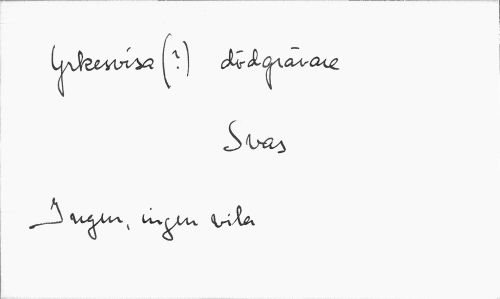 Yrkesvisa (?) dödgrävare
Svas
Ingen, ingen vila